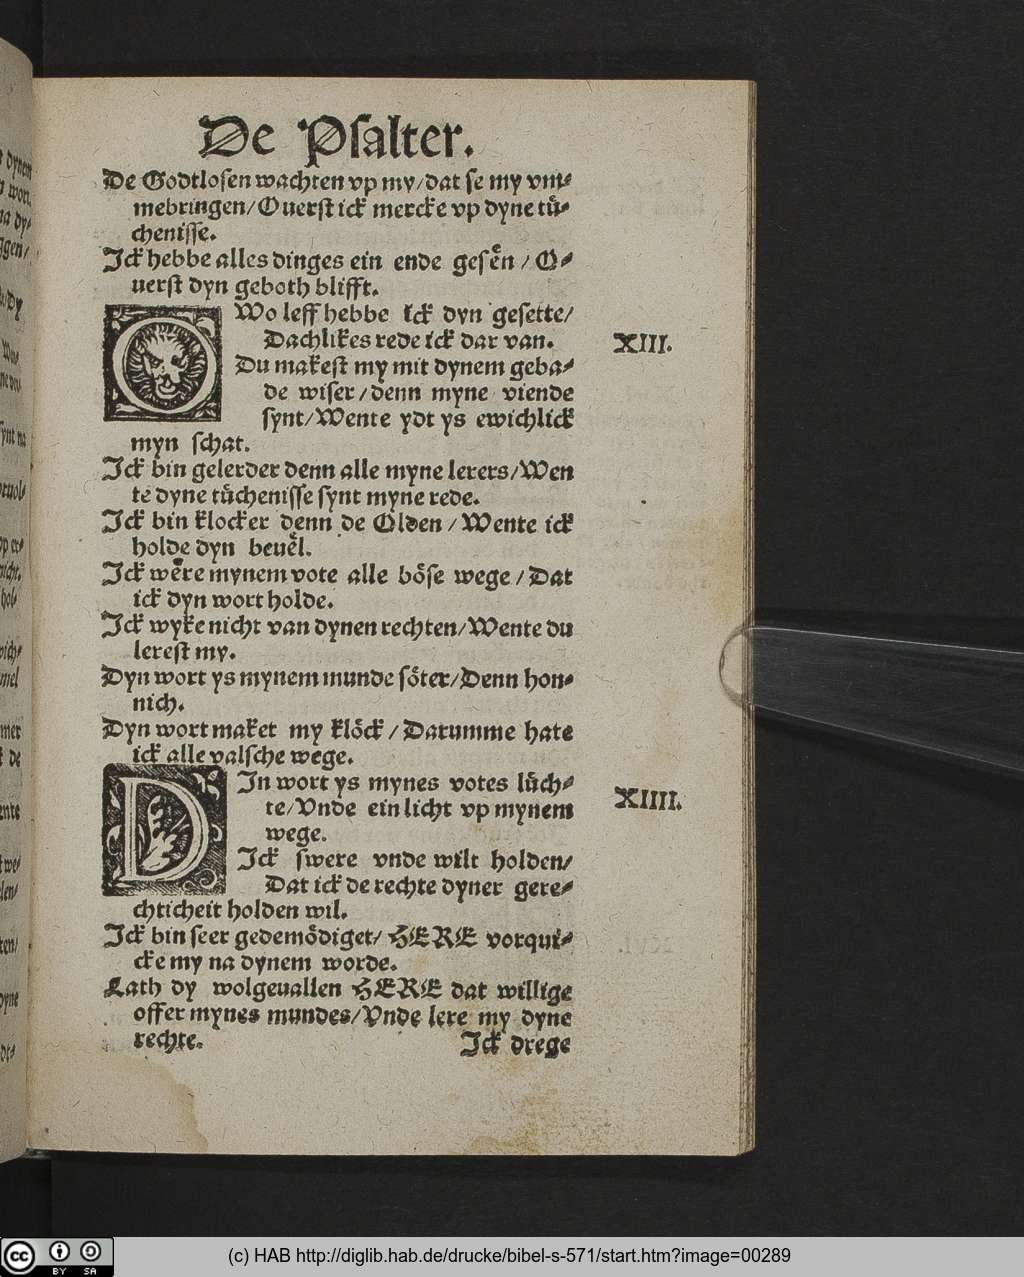 De Psalter.
De Godtlosen wachten vp my/dat se my vm⸗
mebringen/Ouerst ick mercke vp dyne tuͤ⸗
chenisse.
Ick hebbe alles dinges ein ende geseͤn/O⸗
uerst dyn geboth blifft.
OWo leff hebbe ick dyn gesette/
Dachlikes rede ick dar van.
XIII.
Du makest my mit dynem geba⸗
de wiser/denn myne viende
synt/Wente ydt ys ewichlick
myn schat.
Ick bin gelerder denn alle myne lerers/Wen
te dyne tuͤchenisse synt myne rede.
Ick bin klocker denn de Olden/Wente ick
holde dyn beueͤl.
Ick weͤre mynem vote alle boͤse wege/Dat
ick dyn wort holde.
Ick wyke nicht van dynen rechten/Wente du
lerest my.
Dyn wort ys mynem munde soͤter/Denn hon⸗
nich.
Dyn wort maket my kloͤck/Darumme hate
ick alle valsche wege.
DIn wort ys mynes votes luͤch⸗
te/Vnde ein licht vp mynem
XIIII.
wege.
Ick swere vnde wilt holden/
Dat ick de rechte dyner gere⸗
chticheit holden wil.
Ick bin seer gedemoͤdiget/HERE vorqui⸗
cke my na dynem worde.
Lath dy wolgeuallen HERE dat willige
offer mynes mundes/Vnde lere my dyne
rechte.
Ick drege
(c) HAB http://diglib.hab.de/drucke/bibel-s-571/start.htm?image=00289
cc BY SA